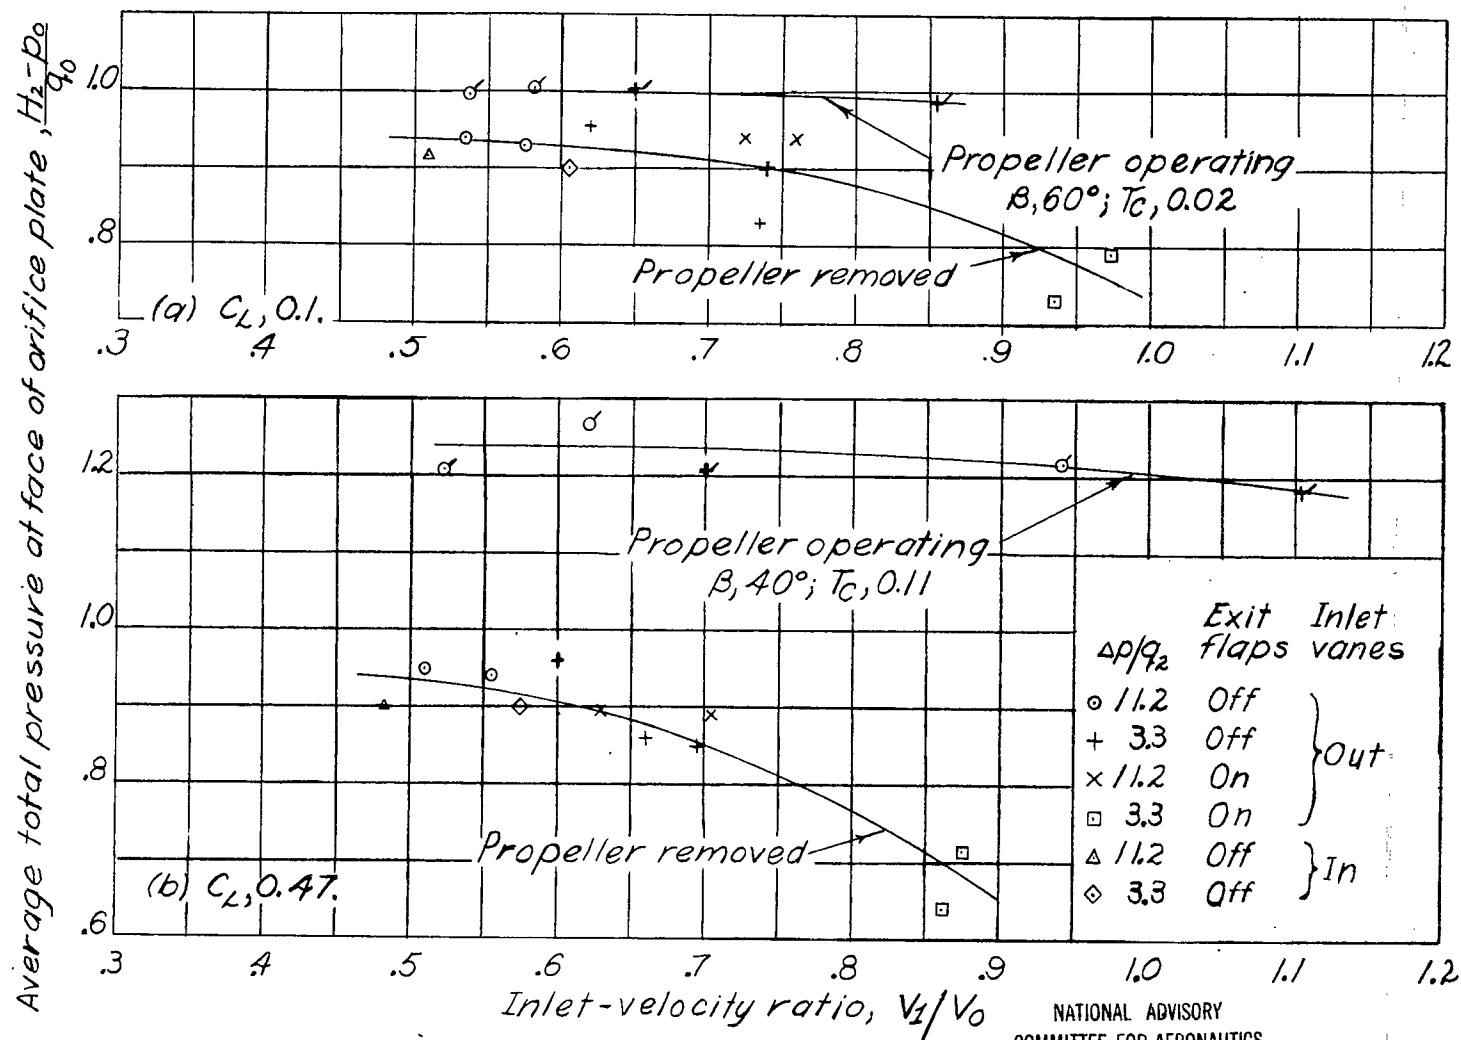 Average total pressure at face of orifice plate, H₂-p₀/q₀
1.0
.8
Propeller operating
β, 60°; Tc, 0.02
Propeller removed
(a) C_L, 0.1.
.3 .4 .5 .6 .7 .8 .9 1.0 1.1 1.2
1.2
1.0
.8
.6
Propeller operating
β, 40°; Tc, 0.11
Propeller removed
(b) C_L, 0.47.
Exit Inlet
Δp/q₂ flaps vanes
⊙ 11.2 Off
+ 3.3 Off
× 11.2 On
⊡ 3.3 On
} Out
△ 11.2 Off
◇ 3.3 Off
} In
.3 .4 .5 .6 .7 .8 .9 1.0 1.1 1.2
Inlet-velocity ratio, V₁/V₀
NATIONAL ADVISORY
COMMITTEE FOR AERONAUTICS